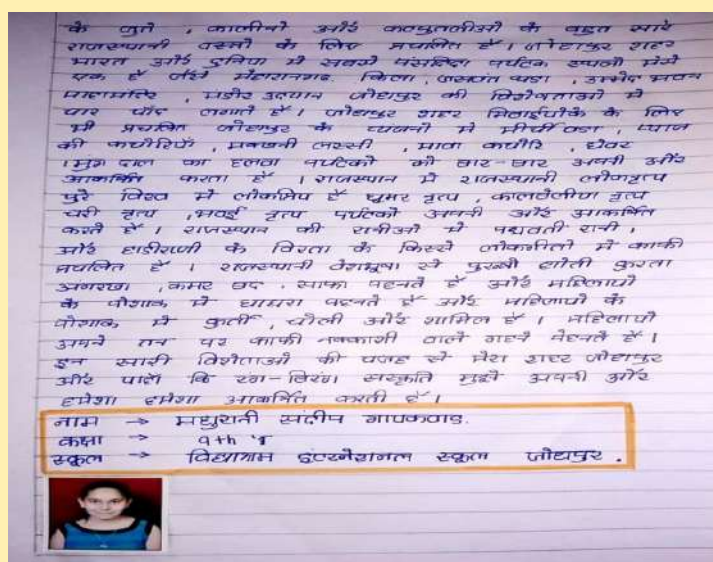 के जुते , कालीनो और कठपुतलीओ के बहुत सारे
राजस्थानी वस्तो के लिए प्रचलित है । जोधपुर शहर
भारत और दुनिया मे सबसे पसंदिदा पर्यटक स्थलो मेसे
एक है जैसे मेहरानगढ किला , जसवंत थडा , उम्मेद भवन
मंडोर उदयान जोधपुर की विशेषताओ मे
चार चाँद लगाते है । जोधपुर शहर मिठाईयोके के लिए
भी प्रचलित जोधपुर के व्यंजनो मे मीर्ची वडा , प्याज
की कचोरियाँ , मक्खनी लस्सी , मावा कचोरि , घेवर
। मुग दाल का हलवा पर्यटको को बार-बार अपनी और
आकर्षित करता है । राजस्थान मे राजस्थानी लोकनृत्य
पुरे विश्व मे लोकप्रिय है घुमर नृत्य , कालबेलीया नृत्य
चरी नृत्य , भवई नृत्य पर्यटको अपनी और आकर्षित
करते है । राजस्थान की रानीओ मे पद्मवती रानी ,
और हाडीराणी के विरता के किस्से लोकगीतो मे काफी
प्रचलित है । राजस्थानी वेशभूषा से पुरखी धोती कुरता
अंगरखा , कमर बंद , साफा पहनते है और महिलायो
के पोशाक मे घाघरा पहनते है और महिलायो के
पोशाक मे कुर्ती , चोली और शामिल है । महिलायो
अपने तन पर काफी नक्काशी वाले गहने पेहनते है ।
इन सारी विशेताओ की वजह से मेरा शहर जोधपुर
और यहाँ कि रंग-बिरंगी संस्कृति मुझे अपनी और
हमेशा हमेशा आकर्षित करती है ।
नाम → मधुरानी संदीप गायकवाड.
कक्षा → 9th
स्कूल → विद्याश्रम इंटरनेशनल स्कूल जोधपुर .